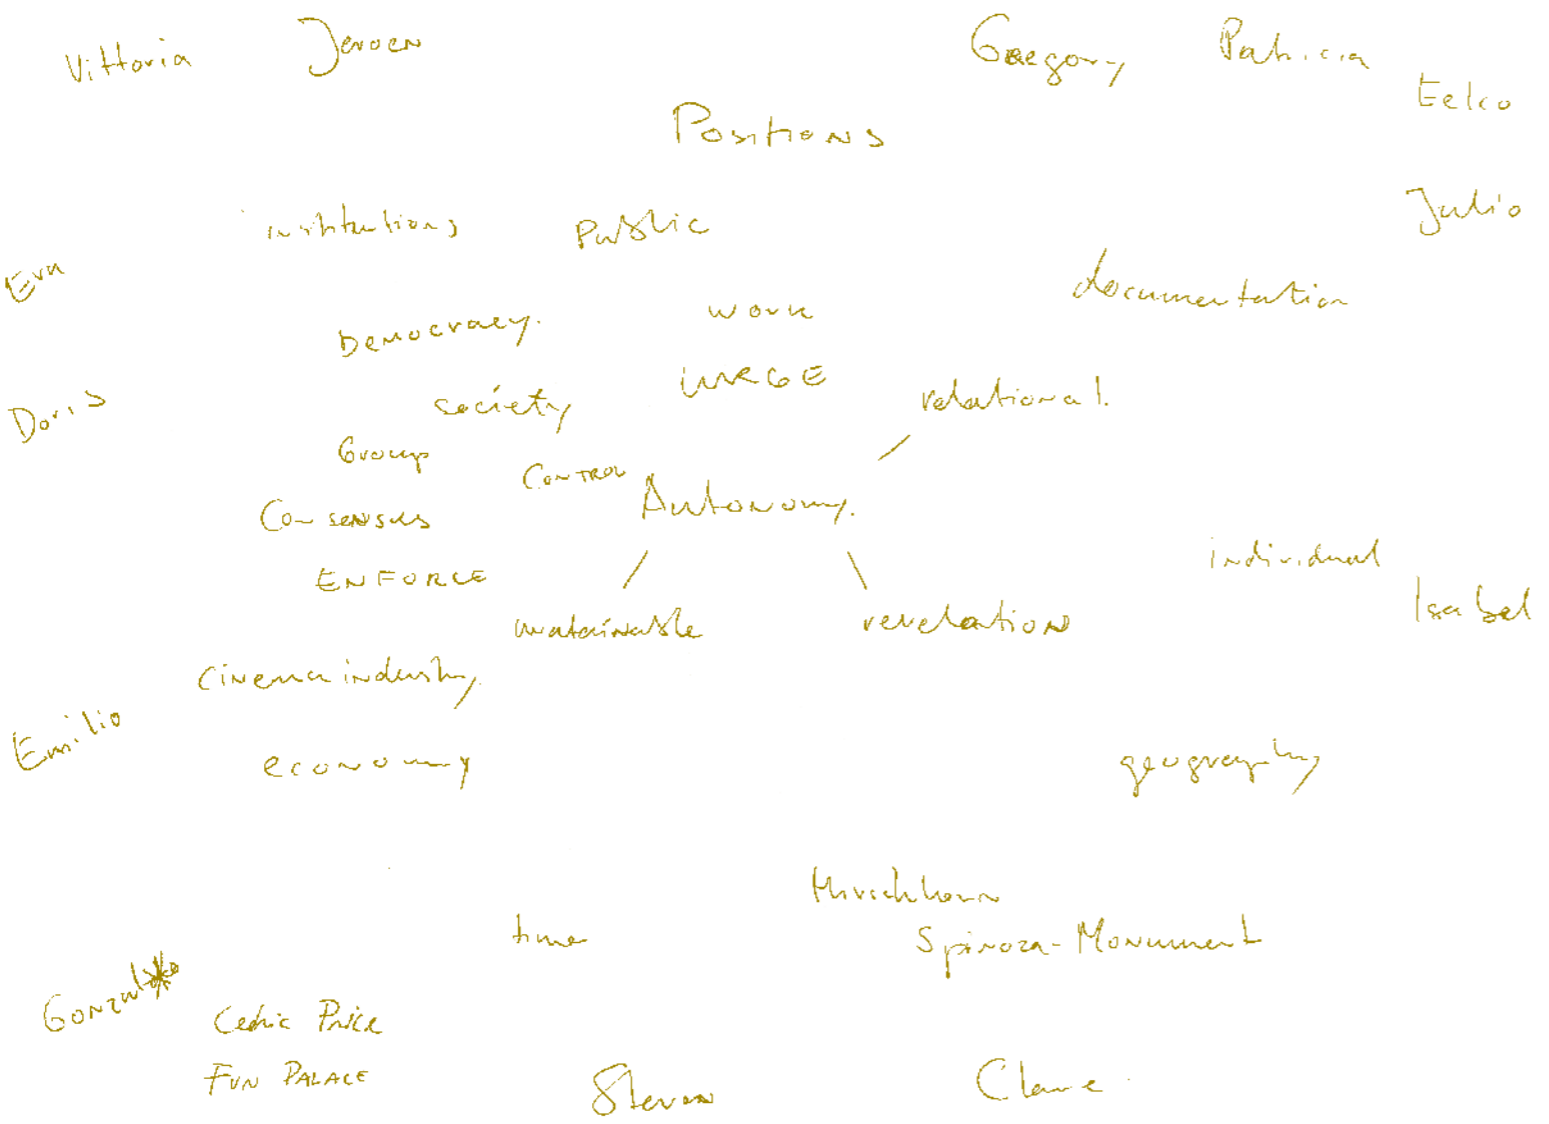 Vittoria
Jeroen
Gregory
Patricia
Eelco
Positions
Julio
institutions
Public
Eva
documentation
Democracy.
work
URGE
Doris
society
relational.
Group
CONTROL
Autonomy.
Consensus
ENFORCE
individual
Isabel
sustainable
revelation
cinema industry
Emilio
economy
geography
Hirschhorn
time
Spinoza-Monument
Cedric Price
FUN PALACE
Steven